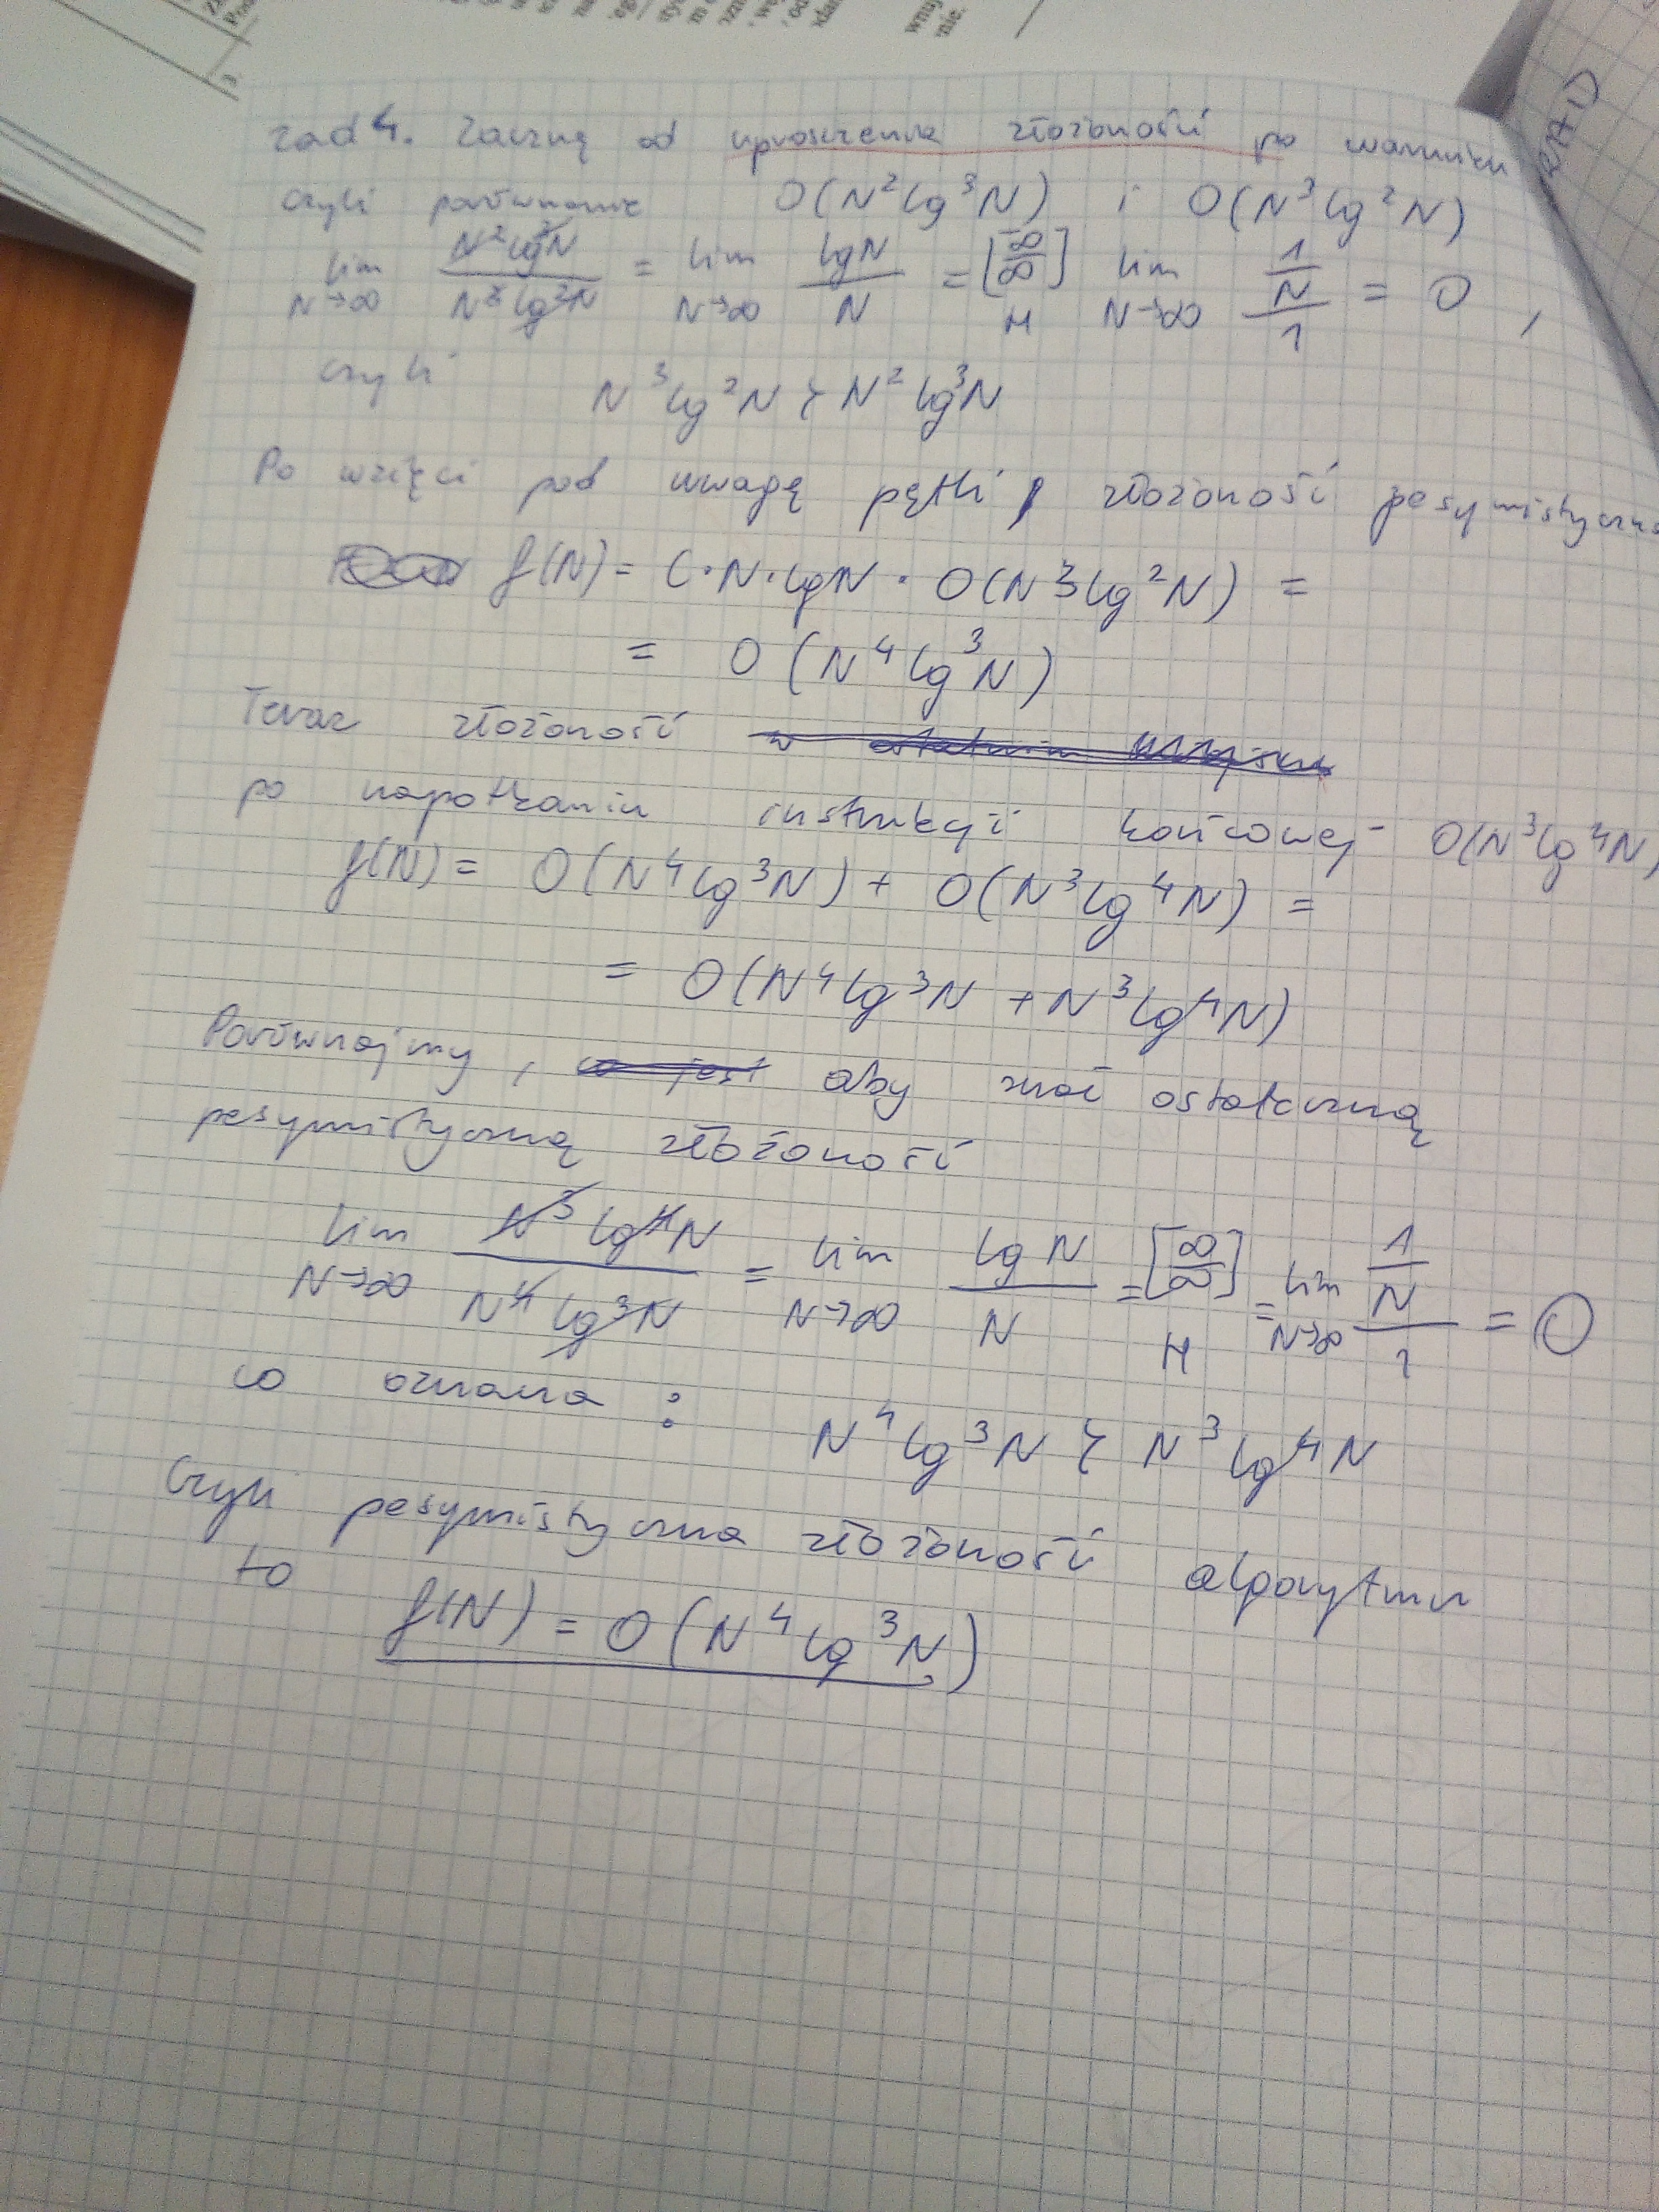 zad 4. Zacznę od uproszczenia złożoności po warunku
czyli porównanie O(N²lg³N) i O(N³lg²N)
lim N→∞ N²lg³N / N³lg²N = lim N→∞ lgN / N = [∞/∞] H lim N→∞ 1/N / 1 = 0,
czyli N³lg²N ≻ N²lg³N
Po wzięci pod uwagę pętli, złożoność pesymistyczna
f(N) = C·N·lgN · O(N³lg²N) =
= O(N⁴lg³N)
Teraz złożoność
po napotkaniu instrukcji końcowej - O(N³lg⁴N)
f(N) = O(N⁴lg³N) + O(N³lg⁴N) =
= O(N⁴lg³N + N³lg⁴N)
Porównajmy, co jest aby znać ostateczną
pesymistyczną złożoność
lim N→∞ N³lg⁴N / N⁴lg³N = lim N→∞ lgN / N = [∞/∞] H = lim N→∞ 1/N / 1 = 0
co oznacza: N⁴lg³N ≻ N³lg⁴N
Czyli pesymistyczna złożoność algorytmu
to f(N) = O(N⁴lg³N)